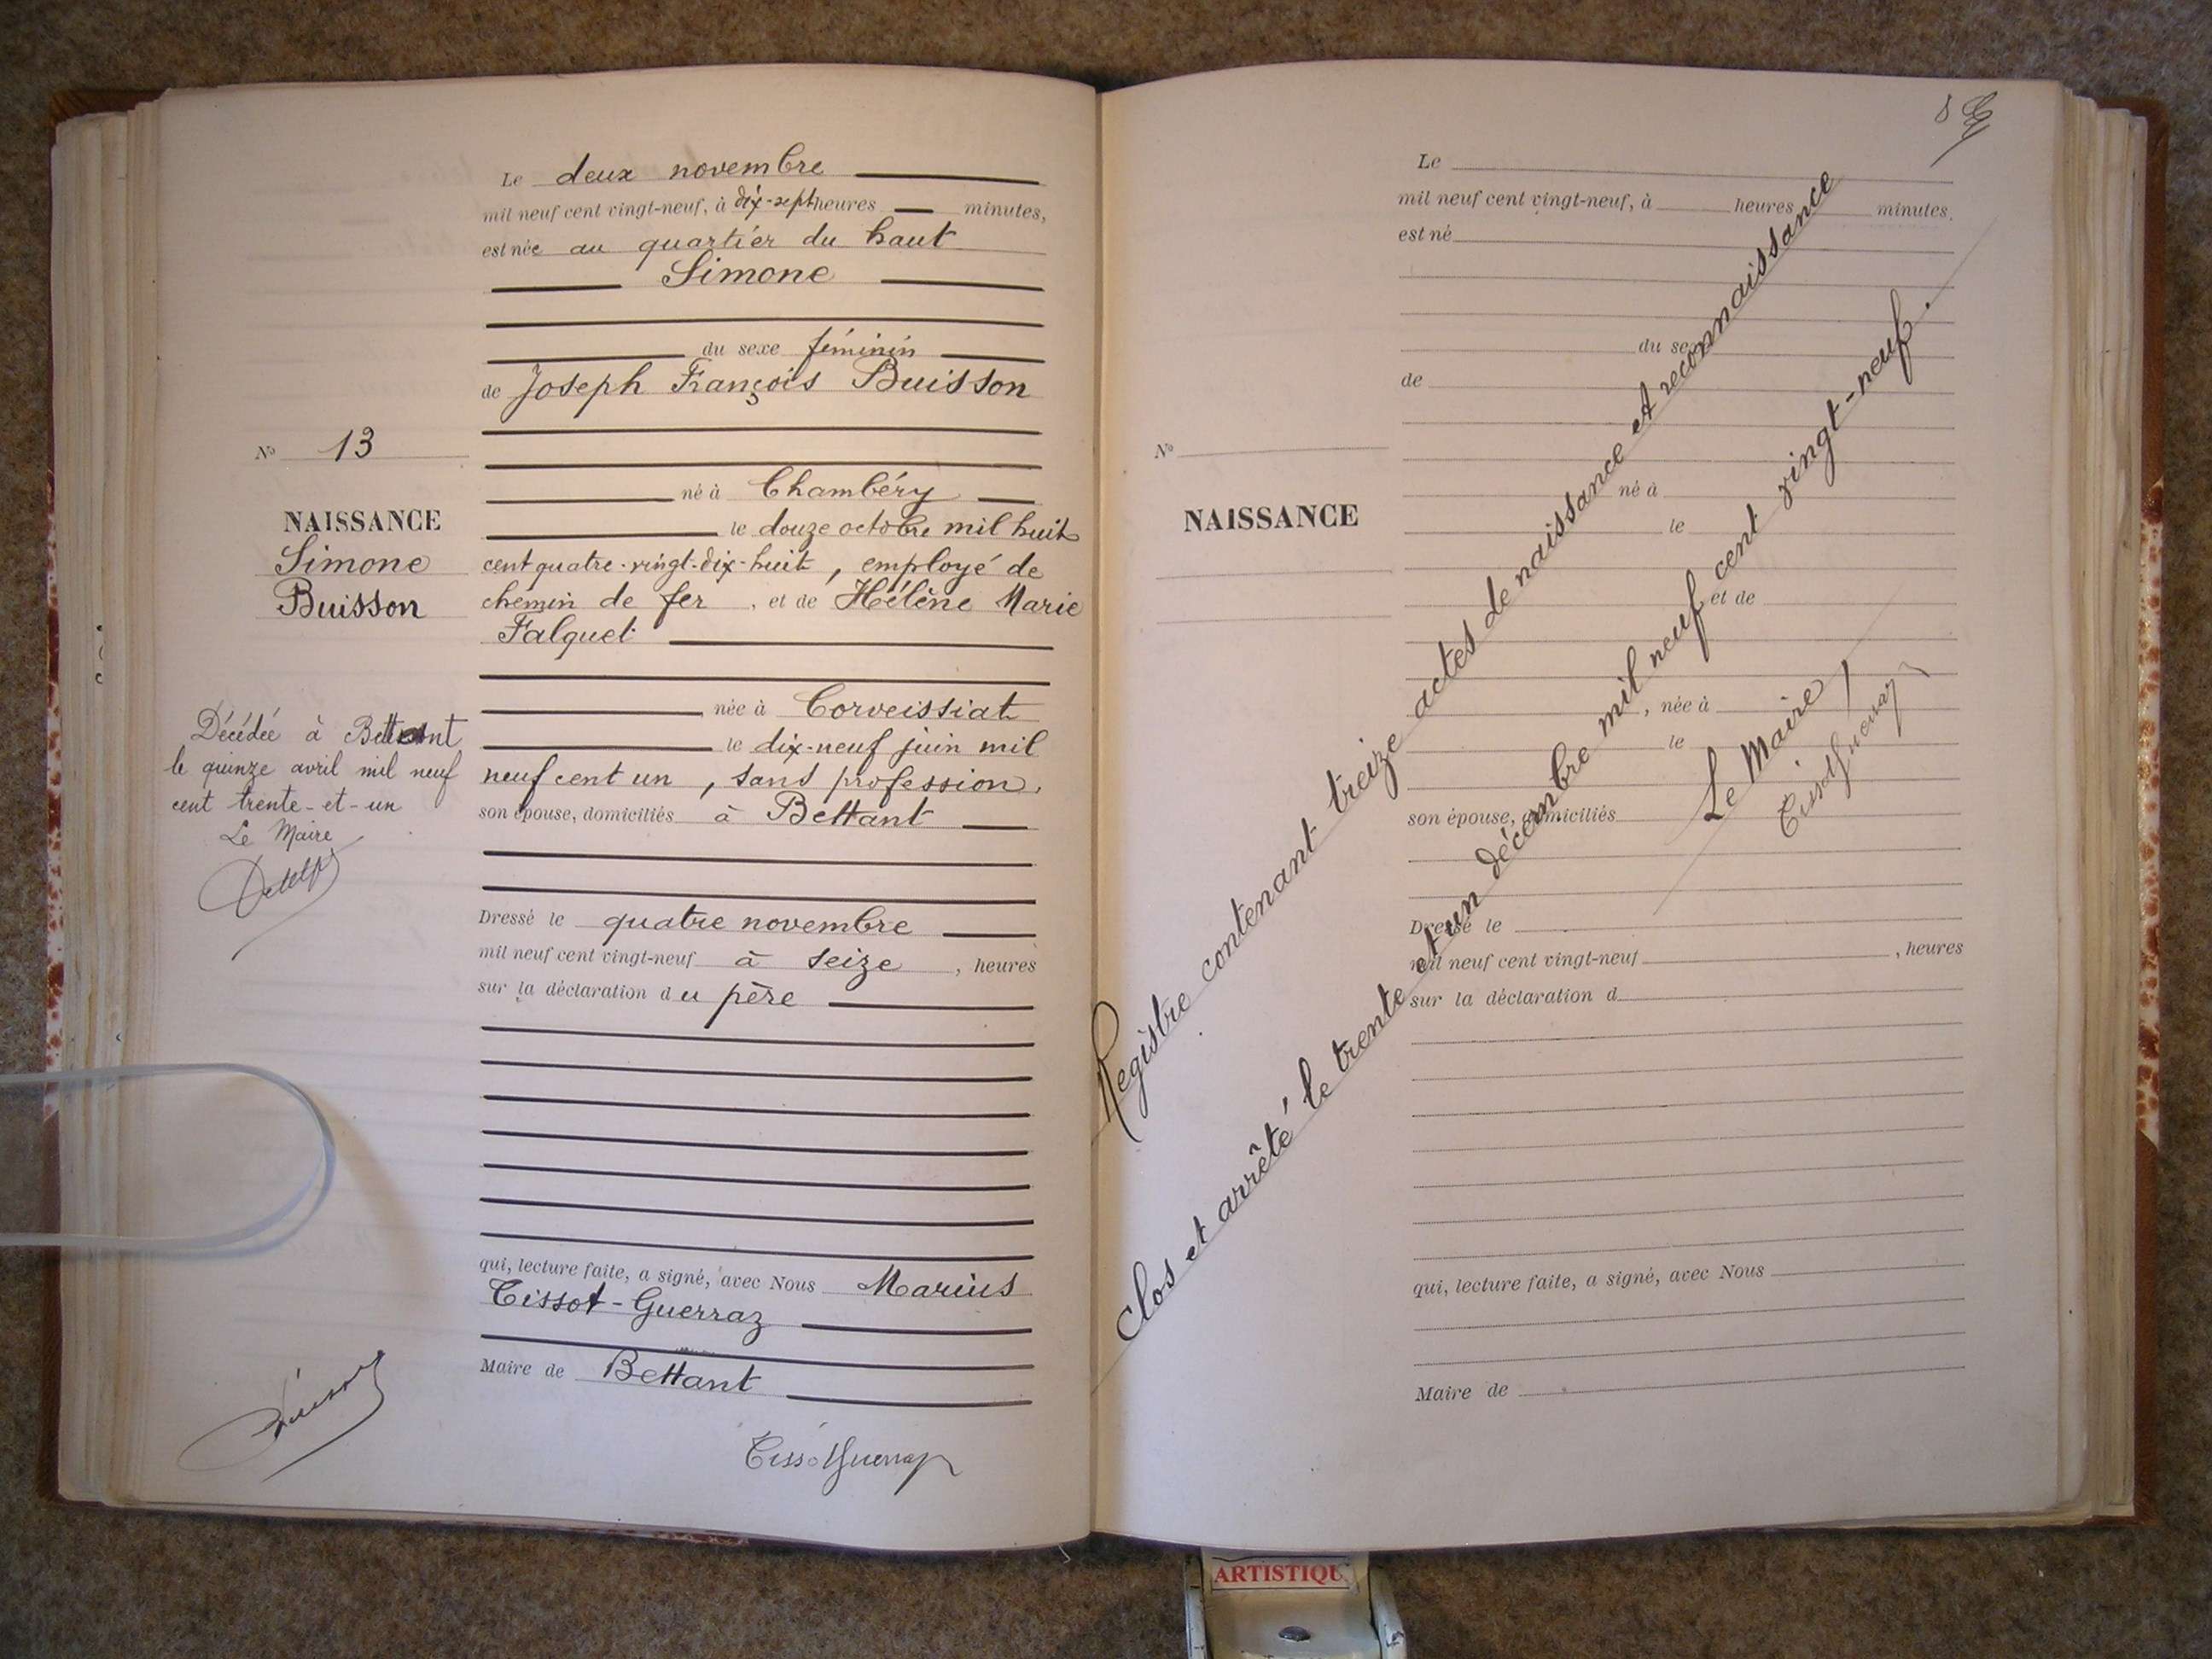 Le deux novembre
mil neuf cent vingt-neuf, à dix-sept heures minutes,
est née au quartier du haut
Simone
du sexe féminin
de Joseph François Buisson
né à Chambéry
le douze octobre mil huit
cent quatre-vingt-dix-huit, employé de
chemin de fer, et de Hélène Marie
Falquet
née à Corveissiat
le dix-neuf juin mil
neuf cent un, sans profession,
son épouse, domiciliés à Bettant
Dressé le quatre novembre
mil neuf cent vingt-neuf à seize, heures
sur la déclaration du père
qui, lecture faite, a signé, avec Nous Marius
Tissot-Guerraz
Maire de Bettant
TissotGuerraz
No 13
NAISSANCE
Simone
Buisson
Décédée à Bettant
le quinze avril mil neuf
cent trente-et-un
Le Maire
Buisson
8
Le
mil neuf cent vingt-neuf, à heures minutes.
est né
du sexe
de
No
né à
NAISSANCE
le
et de
, née à
le
son épouse, domiciliés
Dressé le
mil neuf cent vingt-neuf , heures
sur la déclaration d
qui, lecture faite, a signé, avec Nous
Maire de
Registre contenant treize actes de naissance et reconnaissance
clos et arrêté le trente et un décembre mil neuf cent vingt-neuf.
Le Maire,
TissotGuerraz
ARTISTIQU